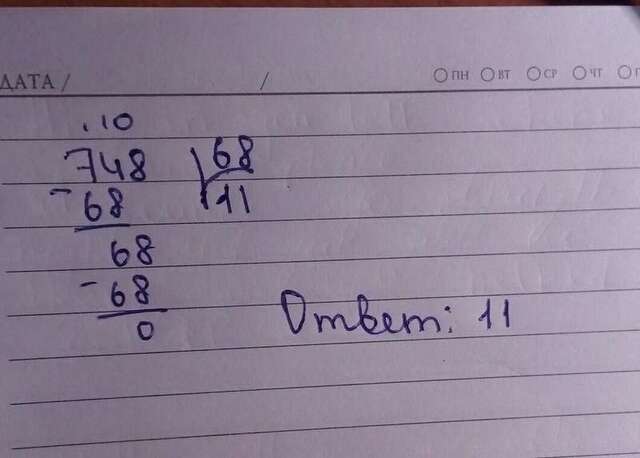 ДАТА / / ПН ВТ СР ЧТ
. 10
748 68
- 68 11
68
- 68
0
Ответ: 11